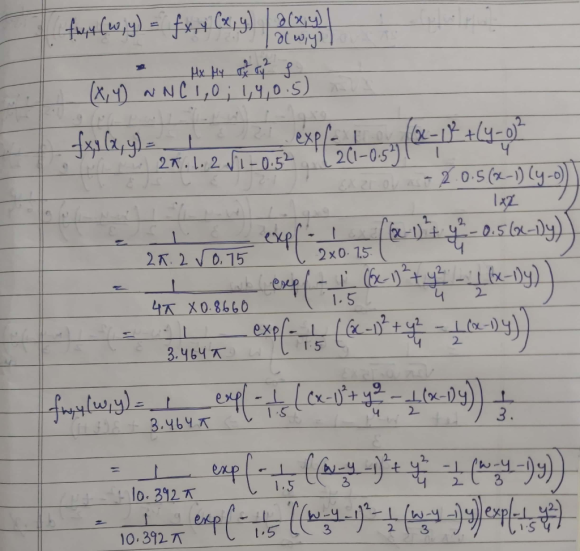 f_{W,Y}(w,y) = f_{X,Y}(x,y) |∂(x,y)/∂(w,y)|
μx μy σx² σy² ρ
(X,Y) ~ N(1,0; 1,4,0.5)
f_{X,Y}(x,y) = 1/(2π.1.2 √(1-0.5²)) exp(-1/(2(1-0.5²)) ((x-1)²/1 + (y-0)²/4
- 2 0.5(x-1)(y-0)/(1×2)))
= 1/(2π.2 √0.75) exp(-1/(2×0.75) ((x-1)² + y²/4 - 0.5(x-1)y))
= 1/(4π ×0.8660) exp(-1/1.5 ((x-1)² + y²/4 - 1/2 (x-1)y))
= 1/(3.464π) exp(-1/1.5 ((x-1)² + y²/4 - 1/2 (x-1)y))
f_{W,Y}(w,y) = 1/(3.464π) exp(-1/1.5 ((x-1)² + y²/4 - 1/2 (x-1)y)) 1/3.
= 1/(10.392π) exp(-1/1.5 (((w-y)/3 -1)² + y²/4 - 1/2 ((w-y)/3 -1)y))
= 1/(10.392π) exp(-1/1.5 (((w-y)/3 -1)² - 1/2 ((w-y)/3 -1)y)) exp(-1/1.5 y²/4)